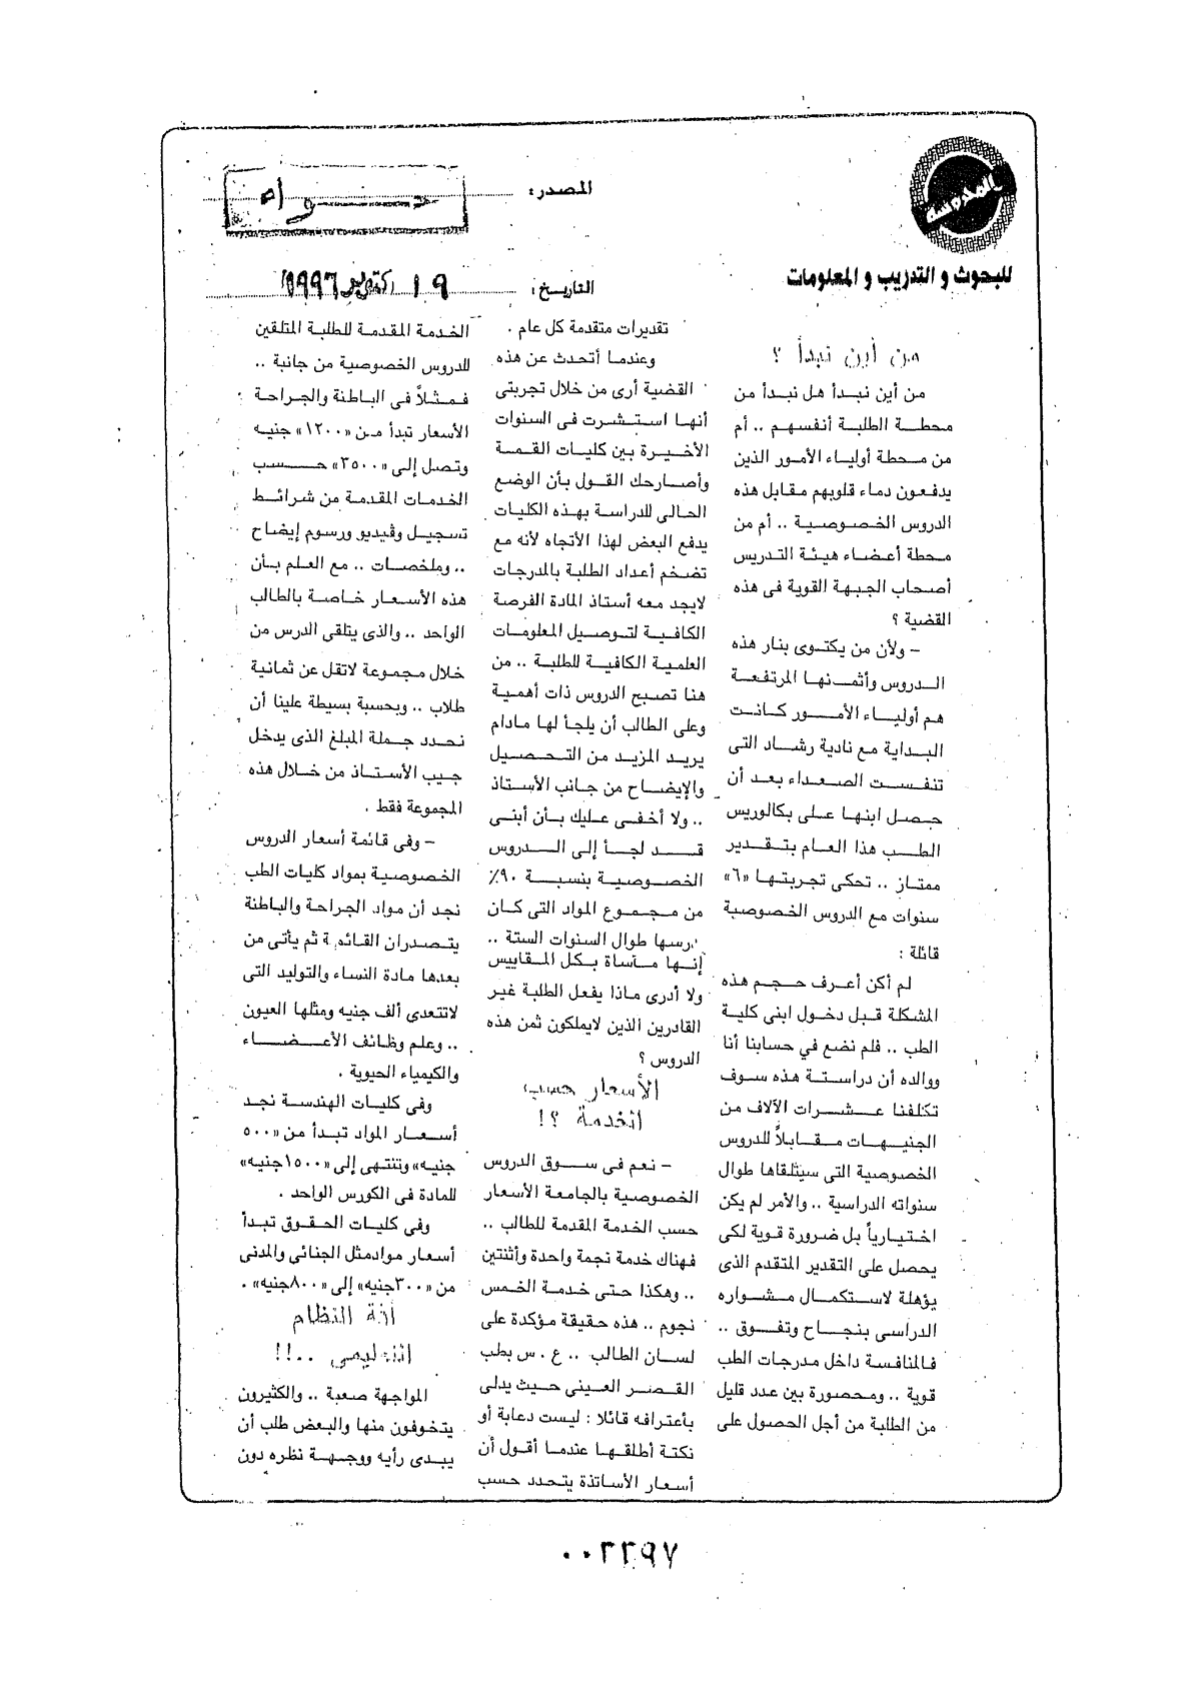 المصدر: حواء
للبحوث و التدريب و المعلومات
التاريخ: ١٩ اكتوبر ١٩٩٦
من أين نبدأ ؟
من أين نبدأ هل نبدأ من
محطة الطلبة أنفسهم .. أم
من محطة أولياء الأمور الذين
يدفعون دماء قلوبهم مقابل هذه
الدروس الخصوصية .. أم من
محطة أعضاء هيئة التدريس
أصحاب الجبهة القوية فى هذه
القضية ؟
– ولأن من يكتوى بنار هذه
الدروس وأثمنها المرتفعة
هم أولياء الأمور كانت
البداية مع نادية رشاد التى
تنفست الصعداء بعد أن
حصل ابنها على بكالوريس
الطب هذا العام بتقدير
ممتاز .. تحكى تجربتها «٦»
سنوات مع الدروس الخصوصية
قائلة :
لم أكن أعرف حجم هذه
المشكلة قبل دخول ابنى كلية
الطب .. فلم نضع في حسابنا أنا
ووالده أن دراستة هذه سوف
تكلفنا عشرات الآلاف من
الجنيهات مقابلاً للدروس
الخصوصية التى سيتلقاها طوال
سنواته الدراسية .. والأمر لم يكن
اختيارياً بل ضرورة قوية لكى
يحصل على التقدير المتقدم الذى
يؤهلة لاستكمال مشواره
الدراسى بنجاح وتفوق ..
فالمنافسة داخل مدرجات الطب
قوية .. ومحصورة بين عدد قليل
من الطلبة من أجل الحصول على
تقديرات متقدمة كل عام .
وعندما أتحدث عن هذه
القضية أرى من خلال تجربتى
أنها استشرت فى السنوات
الأخيرة بين كليات القمة
وأصارحك القول بأن الوضع
الحالى للدراسة بهذه الكليات
يدفع البعض لهذا الأتجاه لأنه مع
تضخم أعداد الطلبة بالمدرجات
لايجد معه أستاذ المادة الفرصة
الكافية لتوصيل المعلومات
العلمية الكافية للطلبة .. من
هنا تصبح الدروس ذات أهمية
وعلى الطالب أن يلجأ لها مادام
يريد المزيد من التحصيل
والإيضاح من جانب الأستاذ
.. ولا أخفى عليك بأن أبنى
قد لجأ إلى الدروس
الخصوصية بنسبة ٩٠٪
من مجموع المواد التى كان
يدرسها طوال السنوات الستة ..
إنها مأساة بكل المقاييس
ولا أدرى ماذا يفعل الطلبة غير
القادرين الذين لايملكون ثمن هذه
الدروس ؟
الأسعار حسب
الخدمة ؟!
– نعم فى سوق الدروس
الخصوصية بالجامعة الأسعار
حسب الخدمة المقدمة للطالب ..
فهناك خدمة نجمة واحدة وأثنتين
.. وهكذا حتى خدمة الخمس
نجوم .. هذه حقيقة مؤكدة على
لسان الطالب .. ع . س بطب
القصر العينى حيث يدلى
بأعترافه قائلا : ليست دعابة أو
نكتة أطلقها عندما أقول أن
أسعار الأساتذة يتحدد حسب
الخدمة المقدمة للطلبة المتلقين
للدروس الخصوصية من جانبة ..
فمثلاً فى الباطنة والجراحة
الأسعار تبدأ من «١٢٠٠» جنيه
وتصل إلى «٣٥٠٠» حسب
الخدمات المقدمة من شرائط
تسجيل وڤيديو ورسوم إيضاح
.. وملخصات .. مع العلم بأن
هذه الأسعار خاصة بالطالب
الواحد .. والذى يتلقى الدرس من
خلال مجموعة لاتقل عن ثمانية
طلاب .. وبحسبة بسيطة علينا أن
نحدد جملة المبلغ الذى يدخل
جيب الأستاذ من خلال هذه
المجموعة فقط .
– وفى قائمة أسعار الدروس
الخصوصية بمواد كليات الطب
نجد أن مواد الجراحة والباطنة
يتصدران القائمة ثم يأتى من
بعدها مادة النساء والتوليد التى
لاتتعدى ألف جنيه ومثلها العيون
.. وعلم وظائف الأعضاء
والكيمياء الحيوية .
وفى كليات الهندسة نجد
أسعار المواد تبدأ من «٥٠٠
جنيه» وتنتهى إلى «١٥٠٠جنيه»
للمادة فى الكورس الواحد .
وفى كليات الحقوق تبدأ
أسعار موادمثل الجنائى والمدنى
من «٣٠٠جنيه» إلى «٨٠٠جنيه» .
آفة النظام
التعليمى ..!!
المواجهة صعبة .. والكثيرون
يتخوفون منها والبعض طلب أن
يبدى رأيه ووجهة نظره دون
٠٠٢٢٩٧